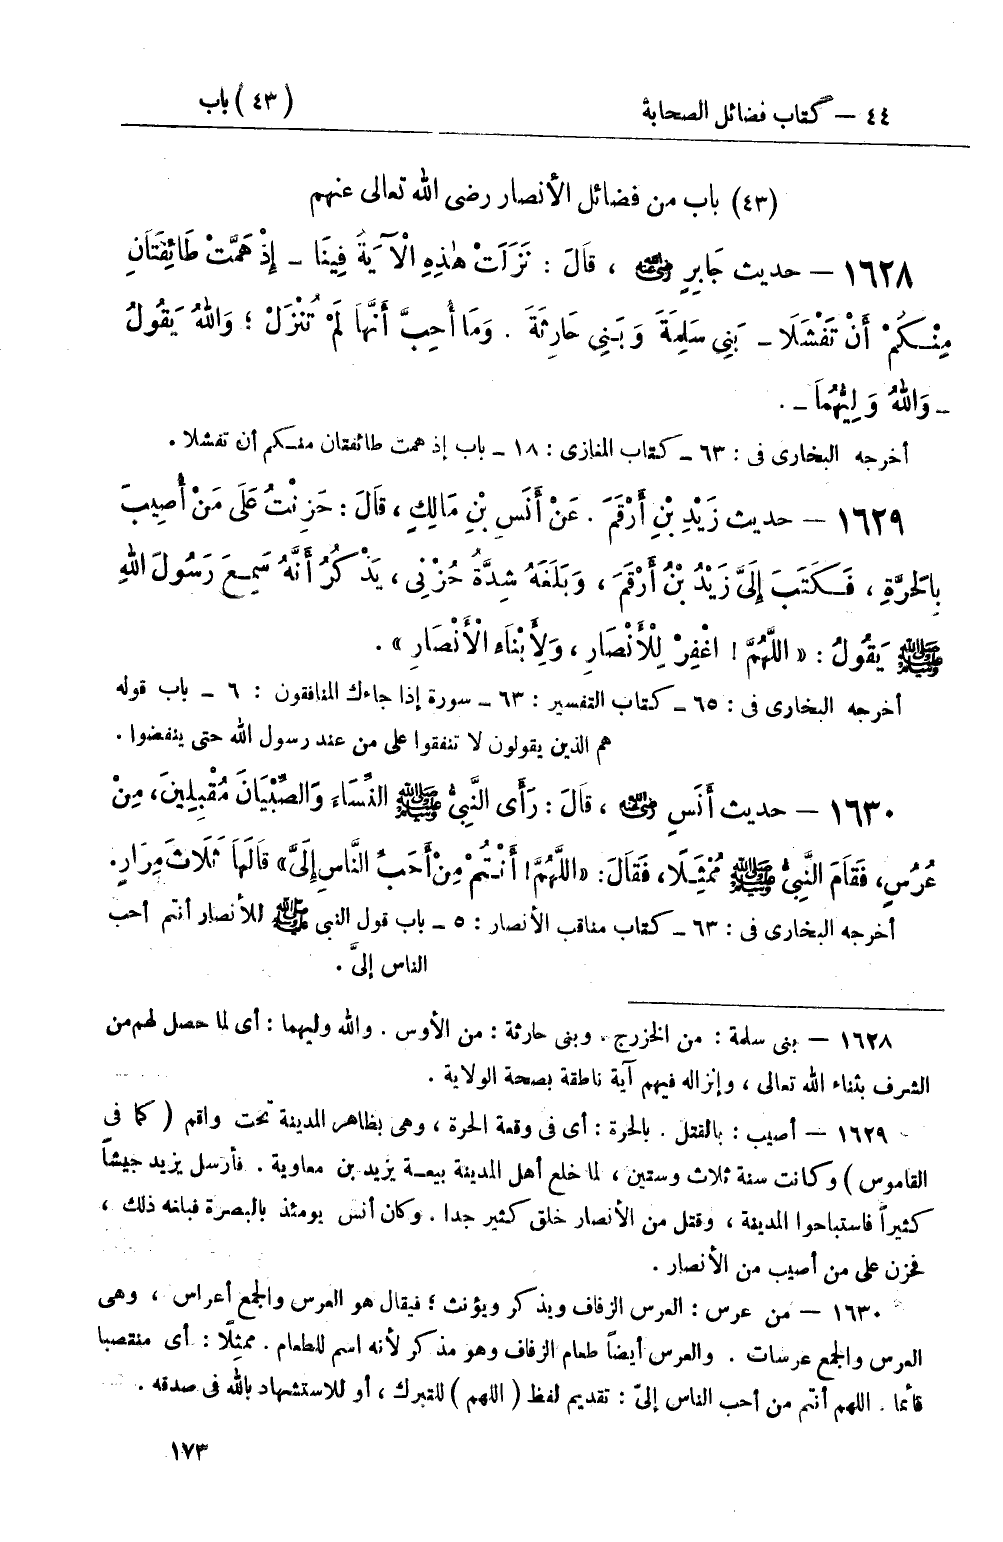 ٤٤ — كتاب فضائل الصحابة (٤٣) باب
(٤٣) باب من فضائل الأنصار رضى الله تعالى عنهم
١٦٢٨ — حديث جَابِرٍ رضي الله عنه ، قَالَ : نَزَلَتْ هٰذِهِ الْآيَةُ فِينَا ـ إِذْ هَمَّتْ طَائِفَتَانِ
مِنْكُمْ أَنْ تَفْشَلَا ـ بَنِي سَلِمَةَ وَبَنِي حَارِثَةَ . وَمَا أُحِبُّ أَنَّهَا لَمْ تُنْزَلْ ؛ وَاللهُ يَقُولُ
ـ وَاللهُ وَلِيُّهُمَا ـ .
أخرجه البخارى فى : ٦٣ ـ كتاب المغازى : ١٨ ـ باب إذ همت طائفتان منكم أن تفشلا .
١٦٢٩ — حديث زَيْدِ بْنِ أَرْقَمَ . عَنْ أَنَسِ بْنِ مَالِكٍ ، قَالَ : حَزِنْتُ عَلَى مَنْ أُصِيبَ
بِالحَرَّةِ ، فَكَتَبَ إِلَيَّ زَيْدُ بْنُ أَرْقَمَ ، وَبَلَغَهُ شِدَّةُ حُزْنِى ، يَذْكُرُ أَنَّهُ سَمِعَ رَسُولَ اللهِ
ﷺ يَقُولُ : « اللَّهُمَّ ! اغْفِرْ لِلْأَنْصَارِ ، وَلِأَبْنَاءِ الْأَنْصَارِ » .
أخرجه البخارى فى : ٦٥ ـ كتاب التفسير : ٦٣ ـ سورة إذا جاءك المنافقون : ٦ ـ باب قوله
هم الذين يقولون لا تنفقوا على من عند رسول الله حتى ينفضوا .
١٦٣٠ — حديث أَنَسٍ رضي الله عنه ، قَالَ : رَأَى النَّبِيُّ ﷺ النِّسَاءَ وَالصِّبْيَانَ مُقْبِلِينَ، مِنْ
عُرُسٍ، فَقَامَ النَّبِيُّ ﷺ مُمْثِلًا، فَقَالَ: «اللَّهُمَّ! أَنْتُمْ مِنْ أَحَبِّ النَّاسِ إِلَيَّ» قَالَهَا ثَلَاثَ مِرَارٍ.
أخرجه البخارى فى : ٦٣ ـ كتاب مناقب الأنصار : ٥ ـ باب قول النبى ﷺ للأنصار أنتم أحب
الناس إلىَّ .
١٦٢٨ — بنى سلمة : من الخزرج . وبنى حارثة : من الأوس . والله وليهما : أى لما حصل لهم من
الشرف بثناء الله تعالى ، وإنزاله فيهم آية ناطقة بصحة الولاية .
١٦٢٩ — أصيب : بالقتل . بالحرة : أى فى وقعة الحرة ، وهى بظاهر المدينة تحت واقم ( كما فى
القاموس ) وكانت سنة ثلاث وستين ، لما خلع أهل المدينة بيعة يزيد بن معاوية . فأرسل يزيد جيشاً
كثيراً فاستباحوا المدينة ، وقتل من الأنصار خلق كثير جدا . وكان أنس يومئذ بالبصرة فبلغه ذلك ،
فحزن على من أصيب من الأنصار .
١٦٣٠ — من عرس : العرس الزفاف ويذكر ويؤنث ؛ فيقال هو العرس والجمع أعراس ، وهى
العرس والجمع عرسات . والعرس أيضاً طعام الزفاف وهو مذكر لأنه اسم للطعام . ممثلًا : أى منتصبا
قائما . اللهم أنتم من أحب الناس إلىّ : تقديم لفظ ( اللهم ) للتبرك ، أو للاستشهاد بالله فى صدقه .
١٧٣